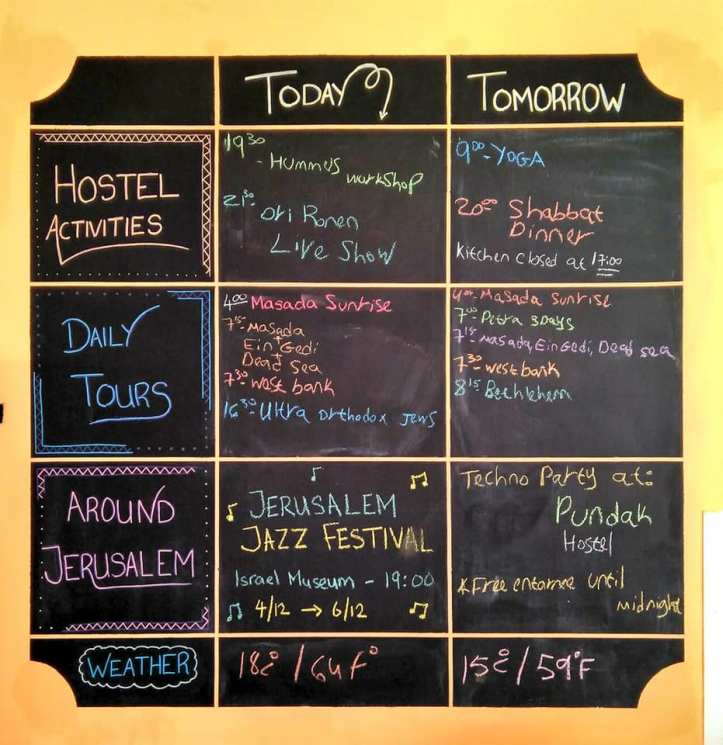 TODAY
TOMORROW
HOSTEL
ACTIVITIES
19:30
- Hummus
workshop
21:30 - Ori Ronen
Live Show
9:00 - YOGA
20:00 Shabbat
Dinner
Kitchen closed at 17:00
DAILY
TOURS
4:00 Masada Sunrise
7:15 - Masada
+
Ein Gedi
+
Dead sea
7:30 - West bank
16:30 - Ultra orthodox Jews
4:00 - Masada Sunrise
7:00 - Petra 3Days
7:15 - Masada, Ein Gedi, Dead sea
7:30 - West bank
8:15 - Bethlehem
AROUND
JERUSALEM
JERUSALEM
JAZZ FESTIVAL
Israel Museum - 19:00
4/12 → 6/12
Techno Party at:
Pundak
Hostel
*Free entarnce until
midnight
WEATHER
18c° / 64f°
15c° / 59°F